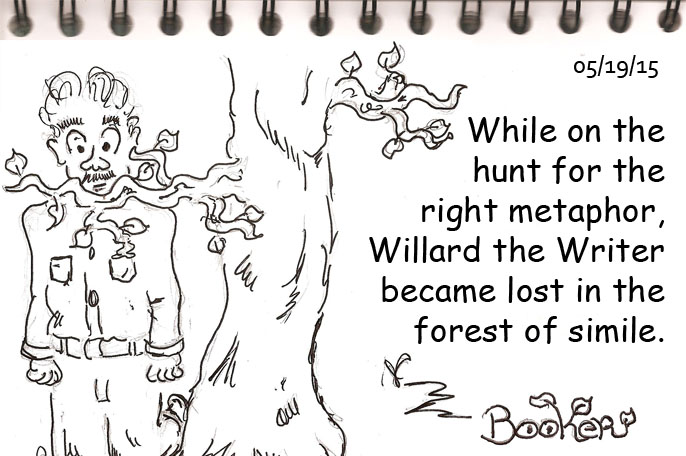 05/19/15
While on the
hunt for the
right metaphor,
Willard the Writer
became lost in the
forest of simile.
Booker